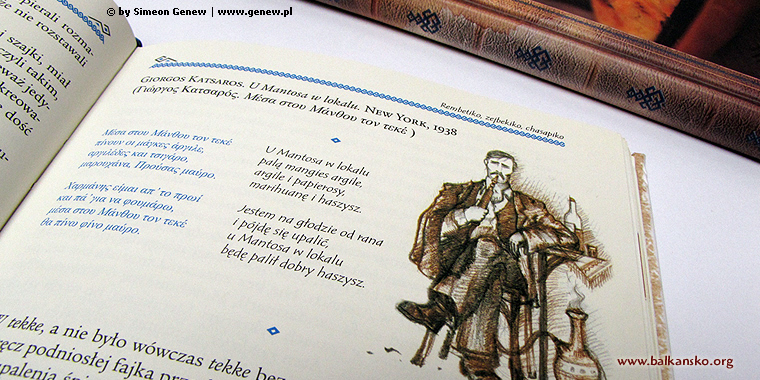 © by Simeon Genew | www.genew.pl
pierali rozma-
nie rozstawali
i szajki, miał
czyli takim,
waż jedy-
krcowa-
dość
Rembetiko, zejbekiko, chasapiko
Giorgos Katsaros. U Mantosa w lokalu. New York, 1938
(Γιώργος Κατσαρός. Μέσα στου Μάνθου τον τεκέ)
Μέσα στου Μάνθου τον τεκέ
πίνουν οι μάγκες άργιλε,
αργιλέδες και τσιγάρο,
μαρουχάνα, Προύσας μαύρο.
Χαρμάνης είμαι απ΄το πρωί
και πά΄για να φουμάρω,
μέσα στου Μάνθου τον τεκέ
θα πίνω φίνο μαύρο.
U Mantosa w lokalu
palą mangies argile,
argile i papierosy,
marihuanę i haszysz.
Jestem na głodzie od rana
i pójdę się upalić,
u Mantosa w lokalu
będę palił dobry haszysz.
W tekke, a nie było wówczas tekke bez
ręcz podniosłej fajka
upalenia
www.balkansko.org